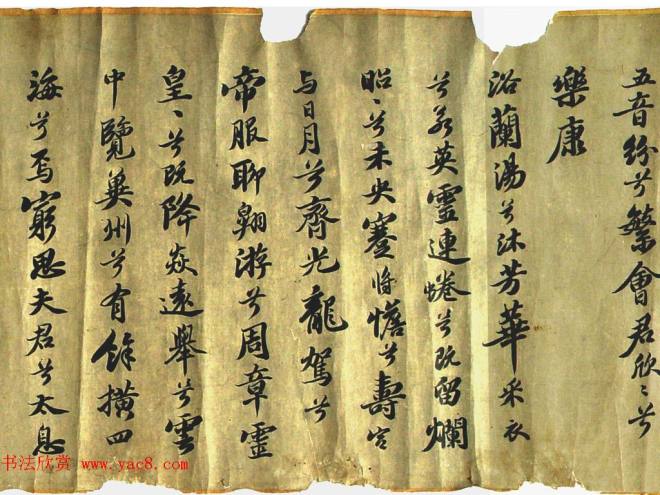 五音紛兮繁會君欣〻兮
樂康
浴蘭湯兮沐芳華采衣
兮若英靈連蜷兮既留爛
昭〻兮未央蹇将憺兮壽宮
与日月兮齊光龍駕兮
帝服聊翱游兮周章靈
皇〻兮既降猋遠舉兮雲
中覽冀州兮有餘横四
海兮焉窮思夫君兮太息
书法欣赏 www.yac8.com